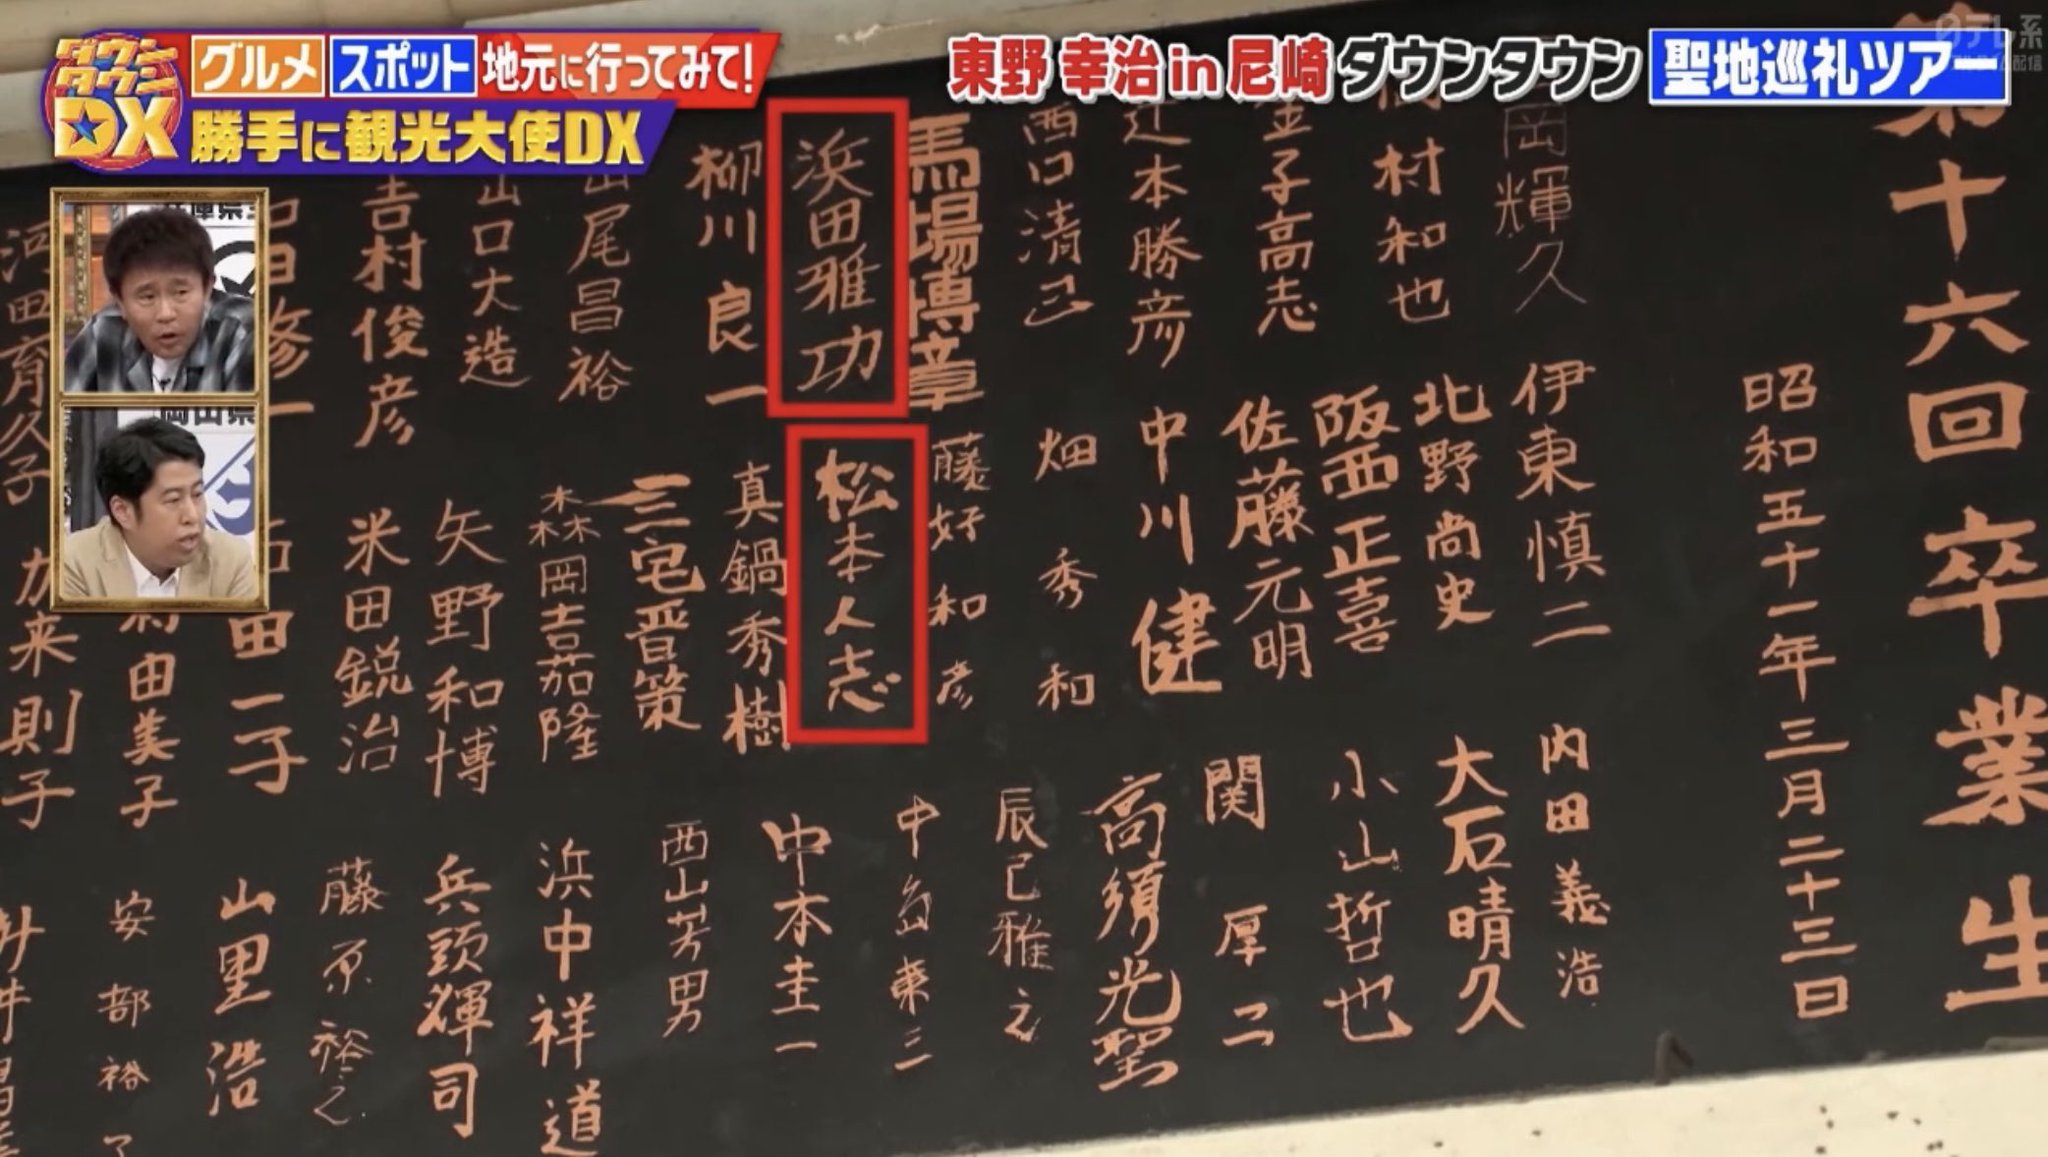 ダウンタウンDX
グルメ スポット 地元に行ってみて!
勝手に観光大使DX
日テレ系
東野 幸治 in 尼崎 ダウンタウン 聖地巡礼ツアー
第十六回卒業生
昭和五十一年三月二十三日
岡輝久
伊東慎二
内田義浩
村和也
北野尚史
大石晴久
金子高志
阪西正喜
小山哲也
辻本勝彦
佐藤元明
関厚二
西口清己
中川健
高須光聖
馬場博章
畑秀和
辰己雅之
浜田雅功
藤好和彦
中島兼三
柳川良一
松本人志
中本圭一
山尾昌裕
真鍋秀樹
西山芳男
山口大造
三宅晋策
浜中祥道
吉村俊彦
森岡嘉隆
兵頭輝司
修一
矢野和博
藤原裕之
河田育久子
米田鋭治
山里浩
田一子
安部裕子
由美子
加来則子